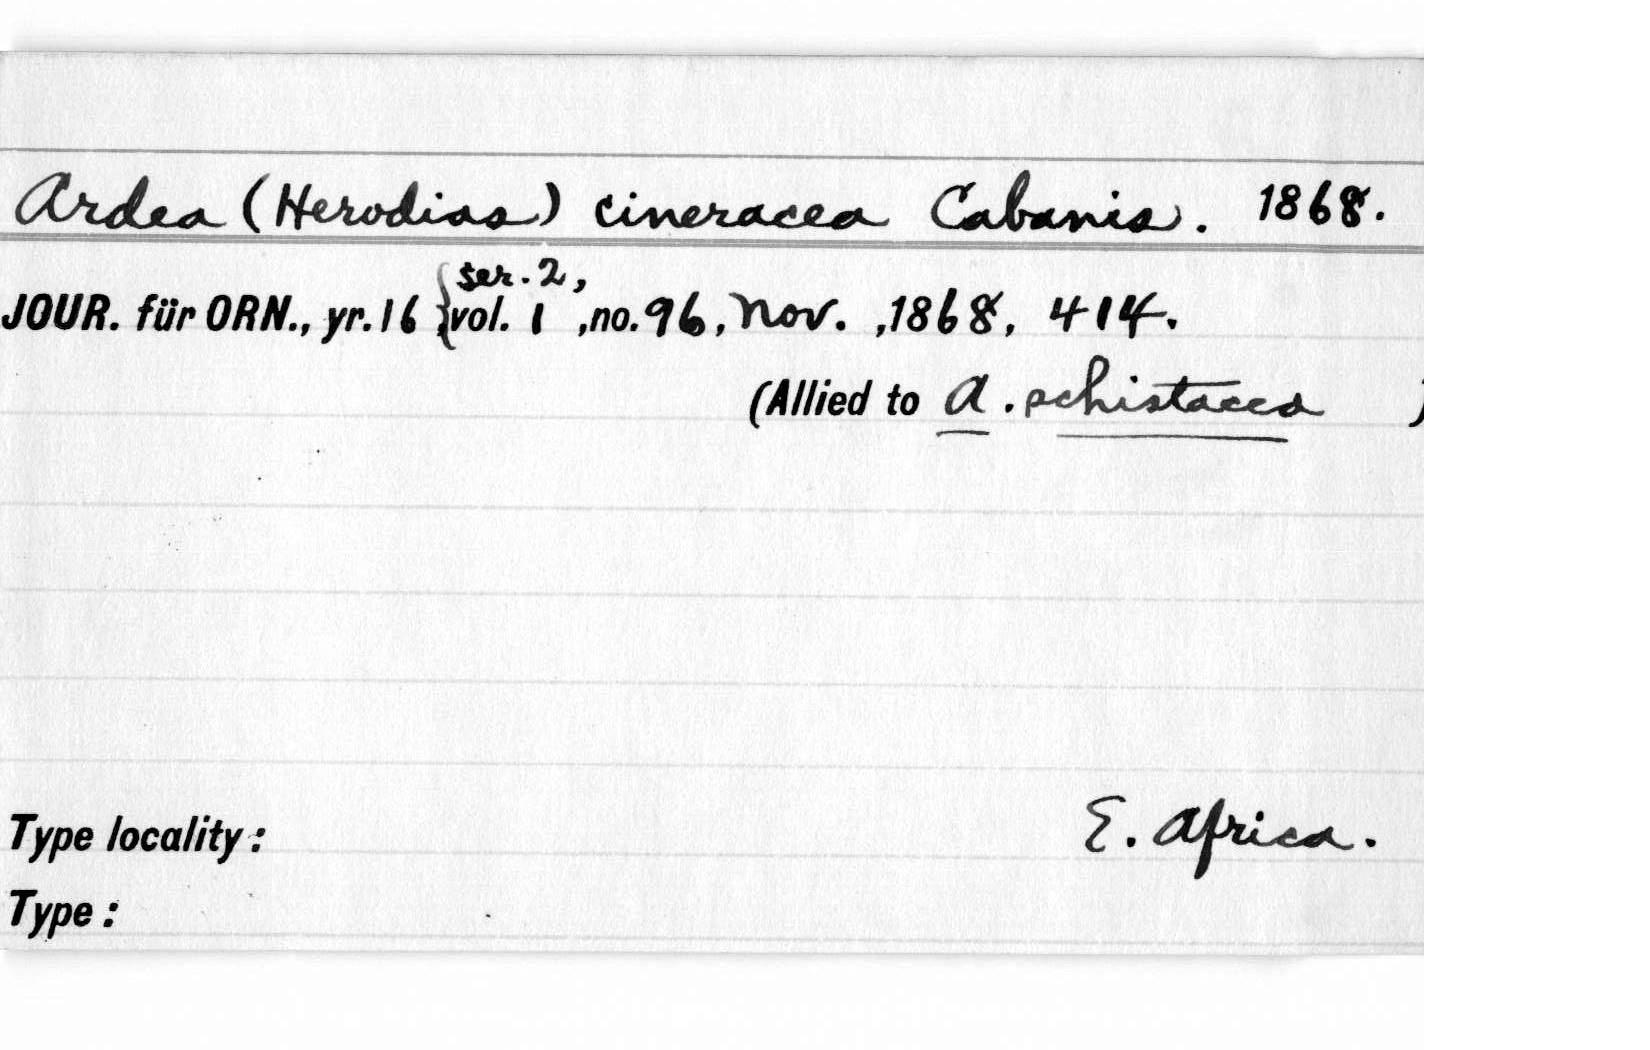 Ardea (Herodias) cineracea Cabanis. 1868.
ser. 2,
JOUR. für ORN., yr. 16 {vol. 1 ,no. 96, Nov. ,1868, 414.
(Allied to A. schistacea )
Type locality: E. Africa.
Type: